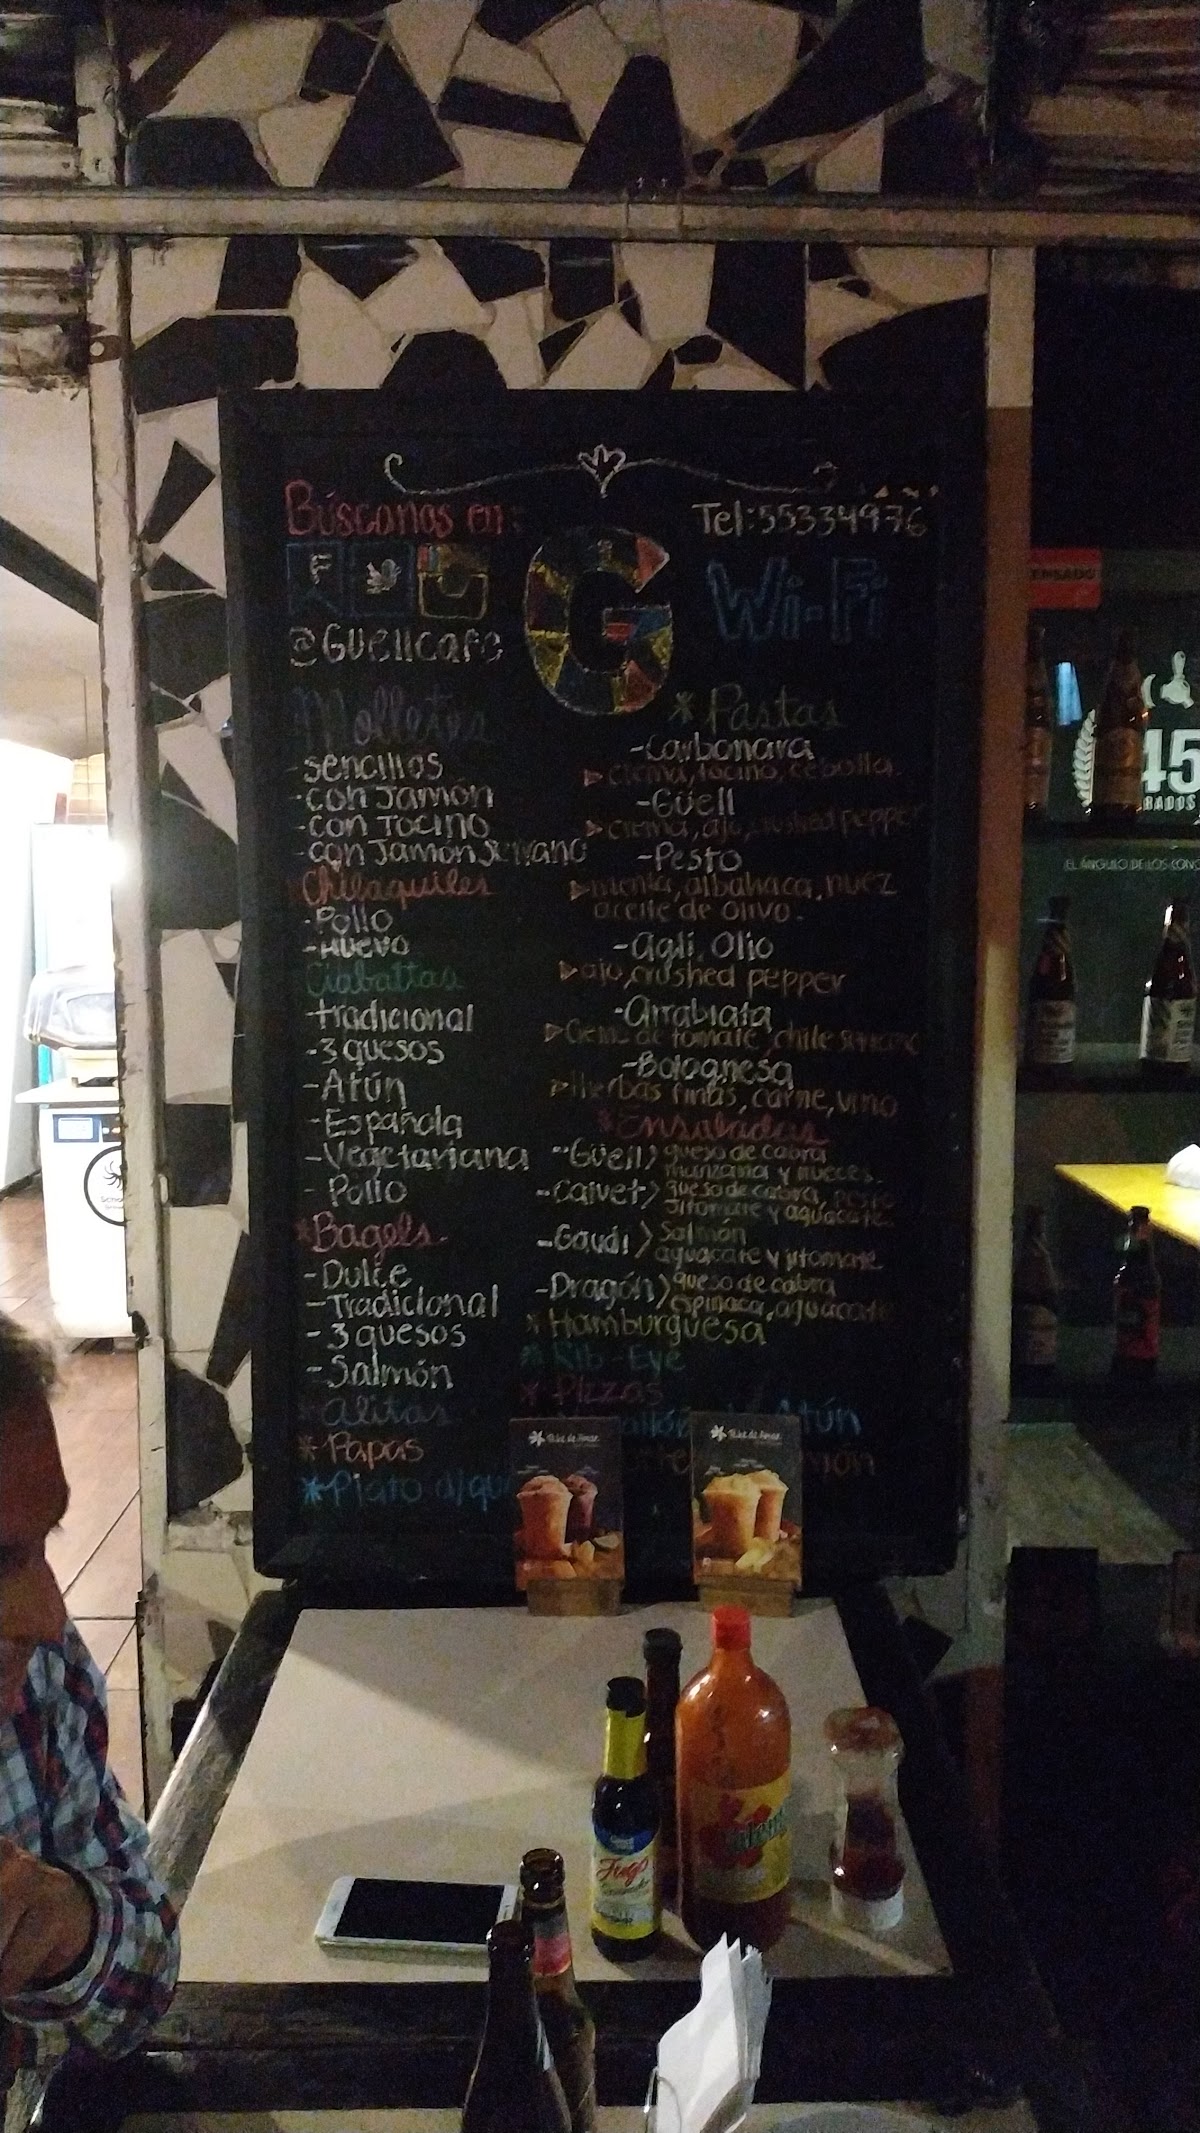 Búscanos en:
Tel:55334976
F
G
Wi-Fi
@Guellcafe
Molletes
-sencillos
-con Jamón
-con Tocino
-con Jamón Serrano
Chilaquiles
-Pollo
-Huevo
Ciabattas
-tradicional
-3 quesos
-Atún
-Española
-Vegetariana
-Pollo
*Bagels
-Dulce
-Tradicional
-3 quesos
-Salmón
*Alitas
*Papas
*Plato d/qu
*Pastas
-Carbonara
crema, tocino, cebolla.
-Güell
crema, ajo, crushed pepper
-Pesto
menta, albahaca, nuez
aceite de olivo.
-Agli, Olio
ajo, crushed pepper
-Arrabiata
Crema de tomate, chile
-Bolognesa
Hierbas finas, carne, vino
*Ensaladas
-Güell> queso de cabra
manzana y nueces.
-Calvet> queso de cabra, pesto
Jitomate y aguacate
-Gaudí> Salmón
aguacate y jitomate
-Dragón> queso de cabra
espinaca, aguacate
*Hamburguesa
*Rib-Eye
*Pizzas
Atún
45
EL ÁNGULO DE LOS
Jugo